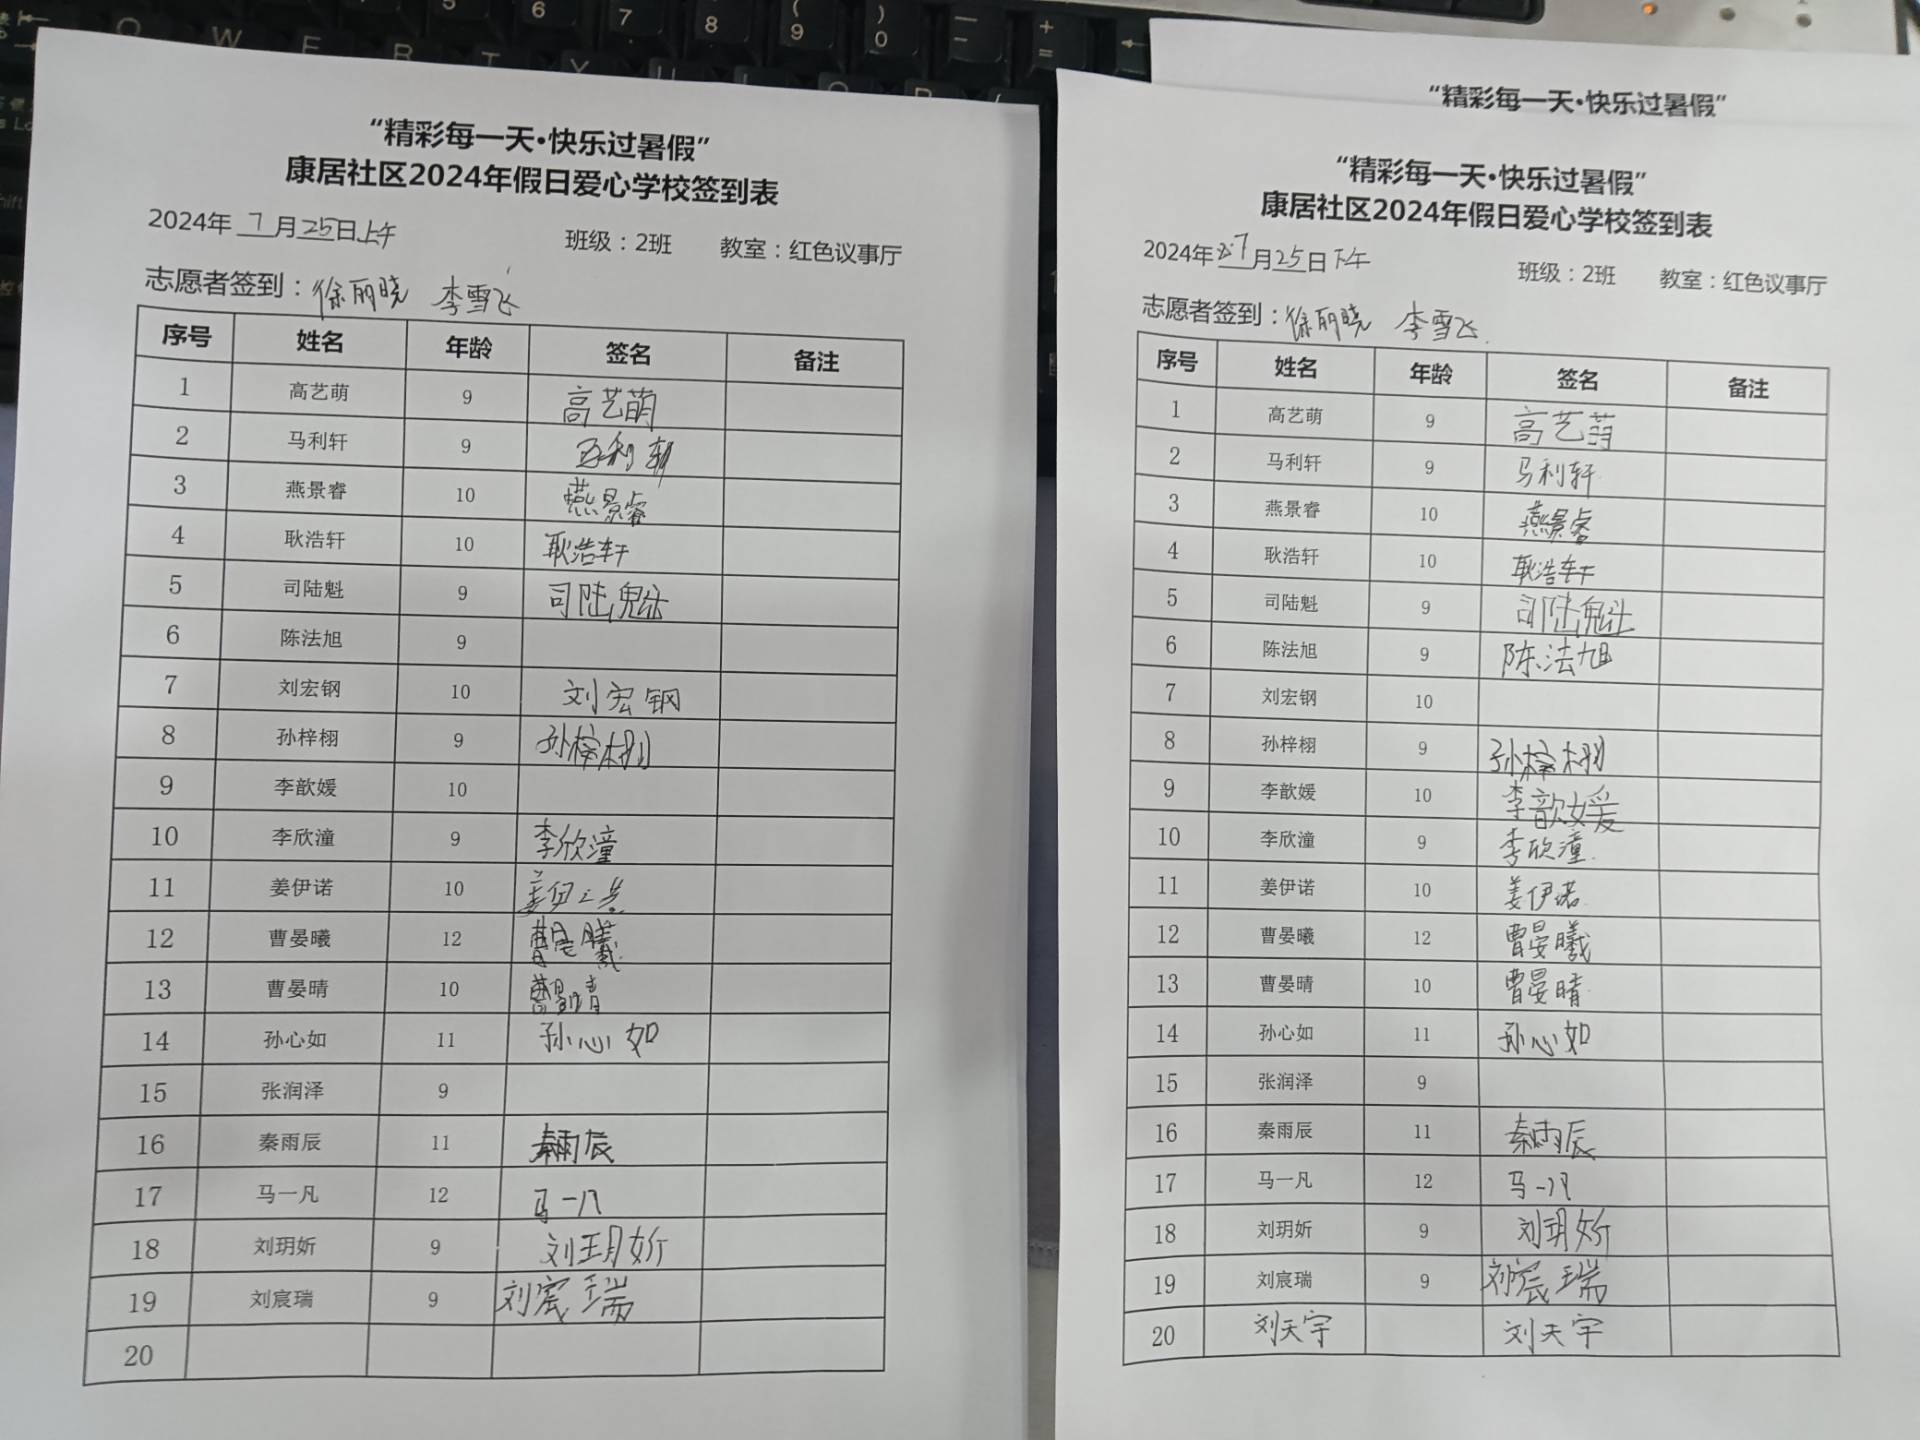 “精彩每一天·快乐过暑假”
康居社区2024年假日爱心学校签到表
2024年 7 月 25 日 上午 班级：2班 教室：红色议事厅
志愿者签到：徐丽晓 李雪飞
序号 姓名 年龄 签名 备注
1 高艺萌 9 高艺萌
2 马利轩 9 马利轩
3 燕景睿 10 燕景睿
4 耿浩轩 10 耿浩轩
5 司陆魁 9 司陆魁
6 陈法旭 9
7 刘宏钢 10 刘宏钢
8 孙梓栩 9 孙梓栩
9 李歆媛 10
10 李欣潼 9 李欣潼
11 姜伊诺 10 姜伊
12 曹晏曦 12 曹晏曦
13 曹晏晴 10 曹晏晴
14 孙心如 11 孙心如
15 张润泽 9
16 秦雨辰 11 秦雨辰
17 马一凡 12 马一八
18 刘玥妡 9 刘玥妡
19 刘宸瑞 9 刘宸瑞
20
“精彩每一天·快乐过暑假”
“精彩每一天·快乐过暑假”
康居社区2024年假日爱心学校签到表
2024年 7 月 25 日 下午 班级：2班 教室：红色议事厅
志愿者签到：徐丽晓 李雪飞
序号 姓名 年龄 签名 备注
1 高艺萌 9 高艺萌
2 马利轩 9 马利轩
3 燕景睿 10 燕景睿
4 耿浩轩 10 耿浩轩
5 司陆魁 9 司陆魁
6 陈法旭 9 陈法旭
7 刘宏钢 10
8 孙梓栩 9 孙梓栩
9 李歆媛 10 李歆媛
10 李欣潼 9 李欣潼
11 姜伊诺 10 姜伊诺
12 曹晏曦 12 曹晏曦
13 曹晏晴 10 曹晏晴
14 孙心如 11 孙心如
15 张润泽 9
16 秦雨辰 11 秦雨辰
17 马一凡 12 马一凡
18 刘玥妡 9 刘玥妡
19 刘宸瑞 9 刘宸瑞
20 刘天宇 刘天宇